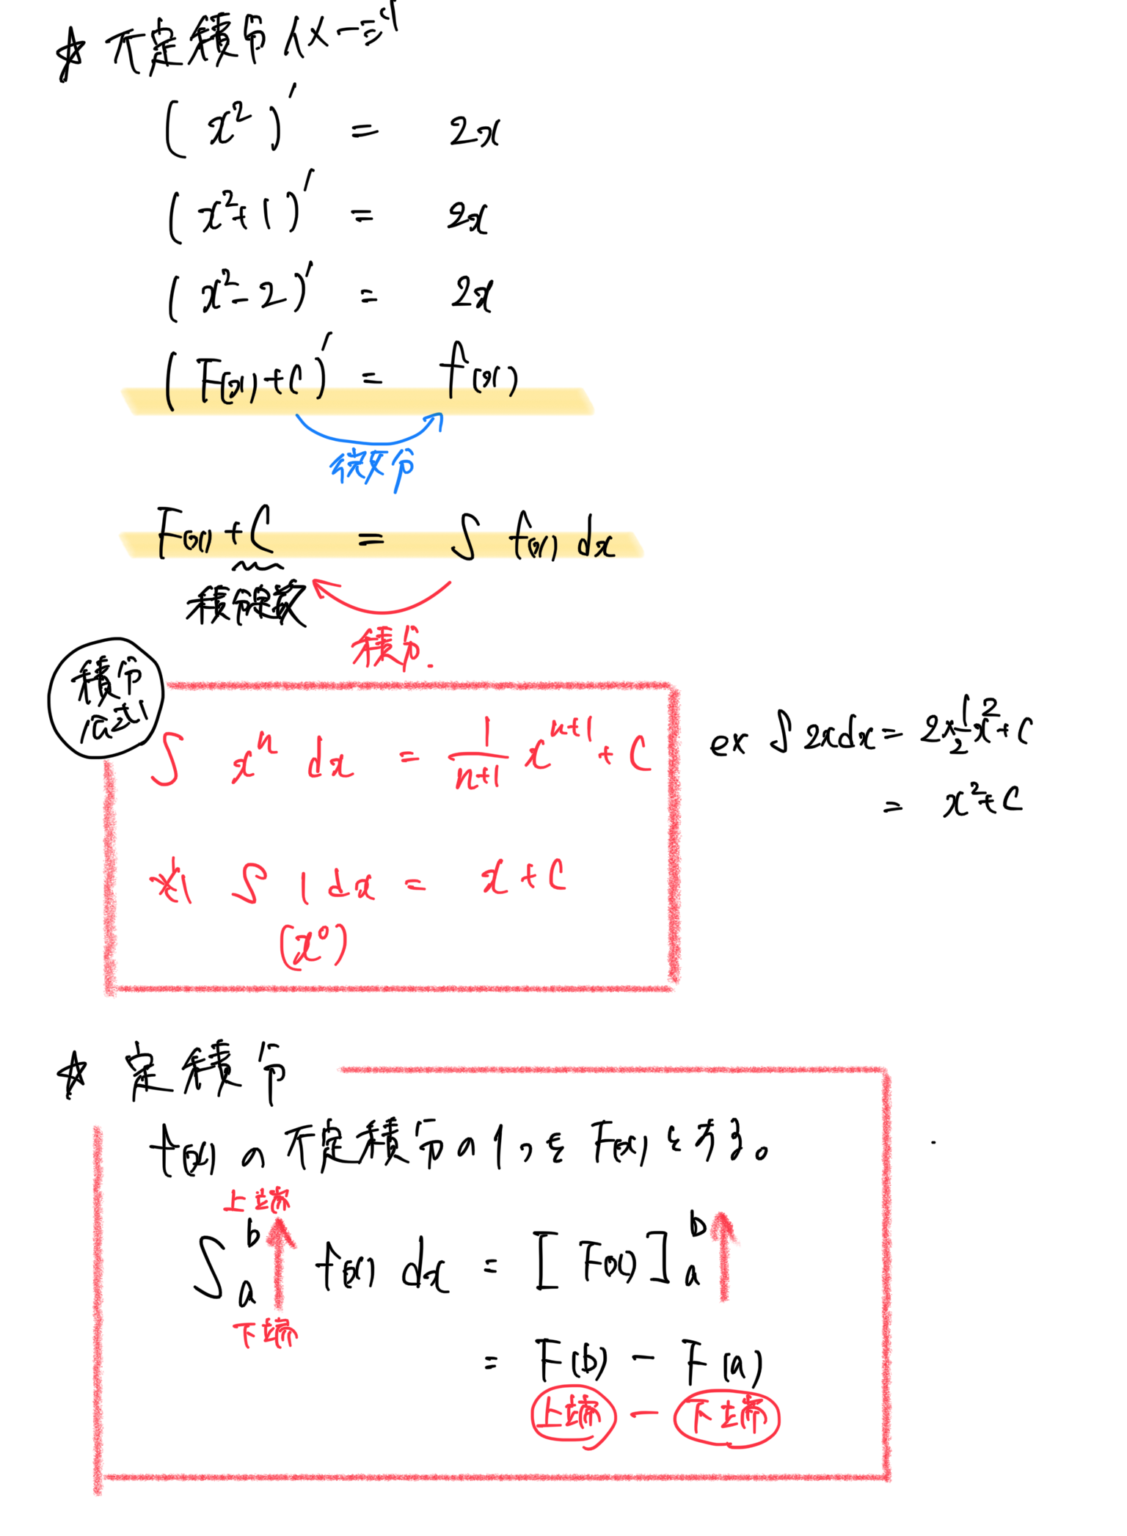 ☆ 不定積分 イメージ
(x²)' = 2x
(x²+1)' = 2x
(x²-2)' = 2x
(F(x)+C)' = f(x)
微分
F(x)+C = ∫ f(x) dx
積分定数
積分.
積分
∫ xⁿ dx = 1/(n+1) xⁿ⁺¹ + C
ex ∫ 2x dx = 2×1/2 x²+C
= x²+C
∫ 1 dx = x + C
(x⁰)
☆ 定積分
f(x) の 不定積分の1つを F(x) とする。
上端
∫ₐᵇ f(x) dx = [ F(x) ]ₐᵇ
下端
= F(b) - F(a)
上端 - 下端